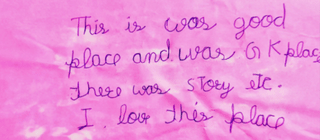 This is was good
place and was G K place
there was story etc.
I. love this place